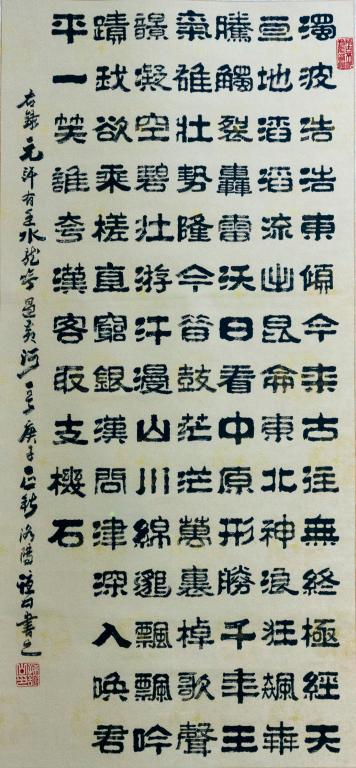 濁波浩浩東傾今來古往無終極經天
亘地滔滔流出昆侖東北神浪狂飆犇
騰觸裂轟雷沃日看中原形勝千年王
氣雄壯勢隆今昔鼓茫茫萬裏棹歌聲
響凝空碧壯游汗漫山川綿邈飄飄吟
蹟我欲乘槎直窮銀漢問津深入喚君
平一笑誰夸漢客取支機石
右錄元許有壬水龍吟過黃河一章庚子秋洛陽書